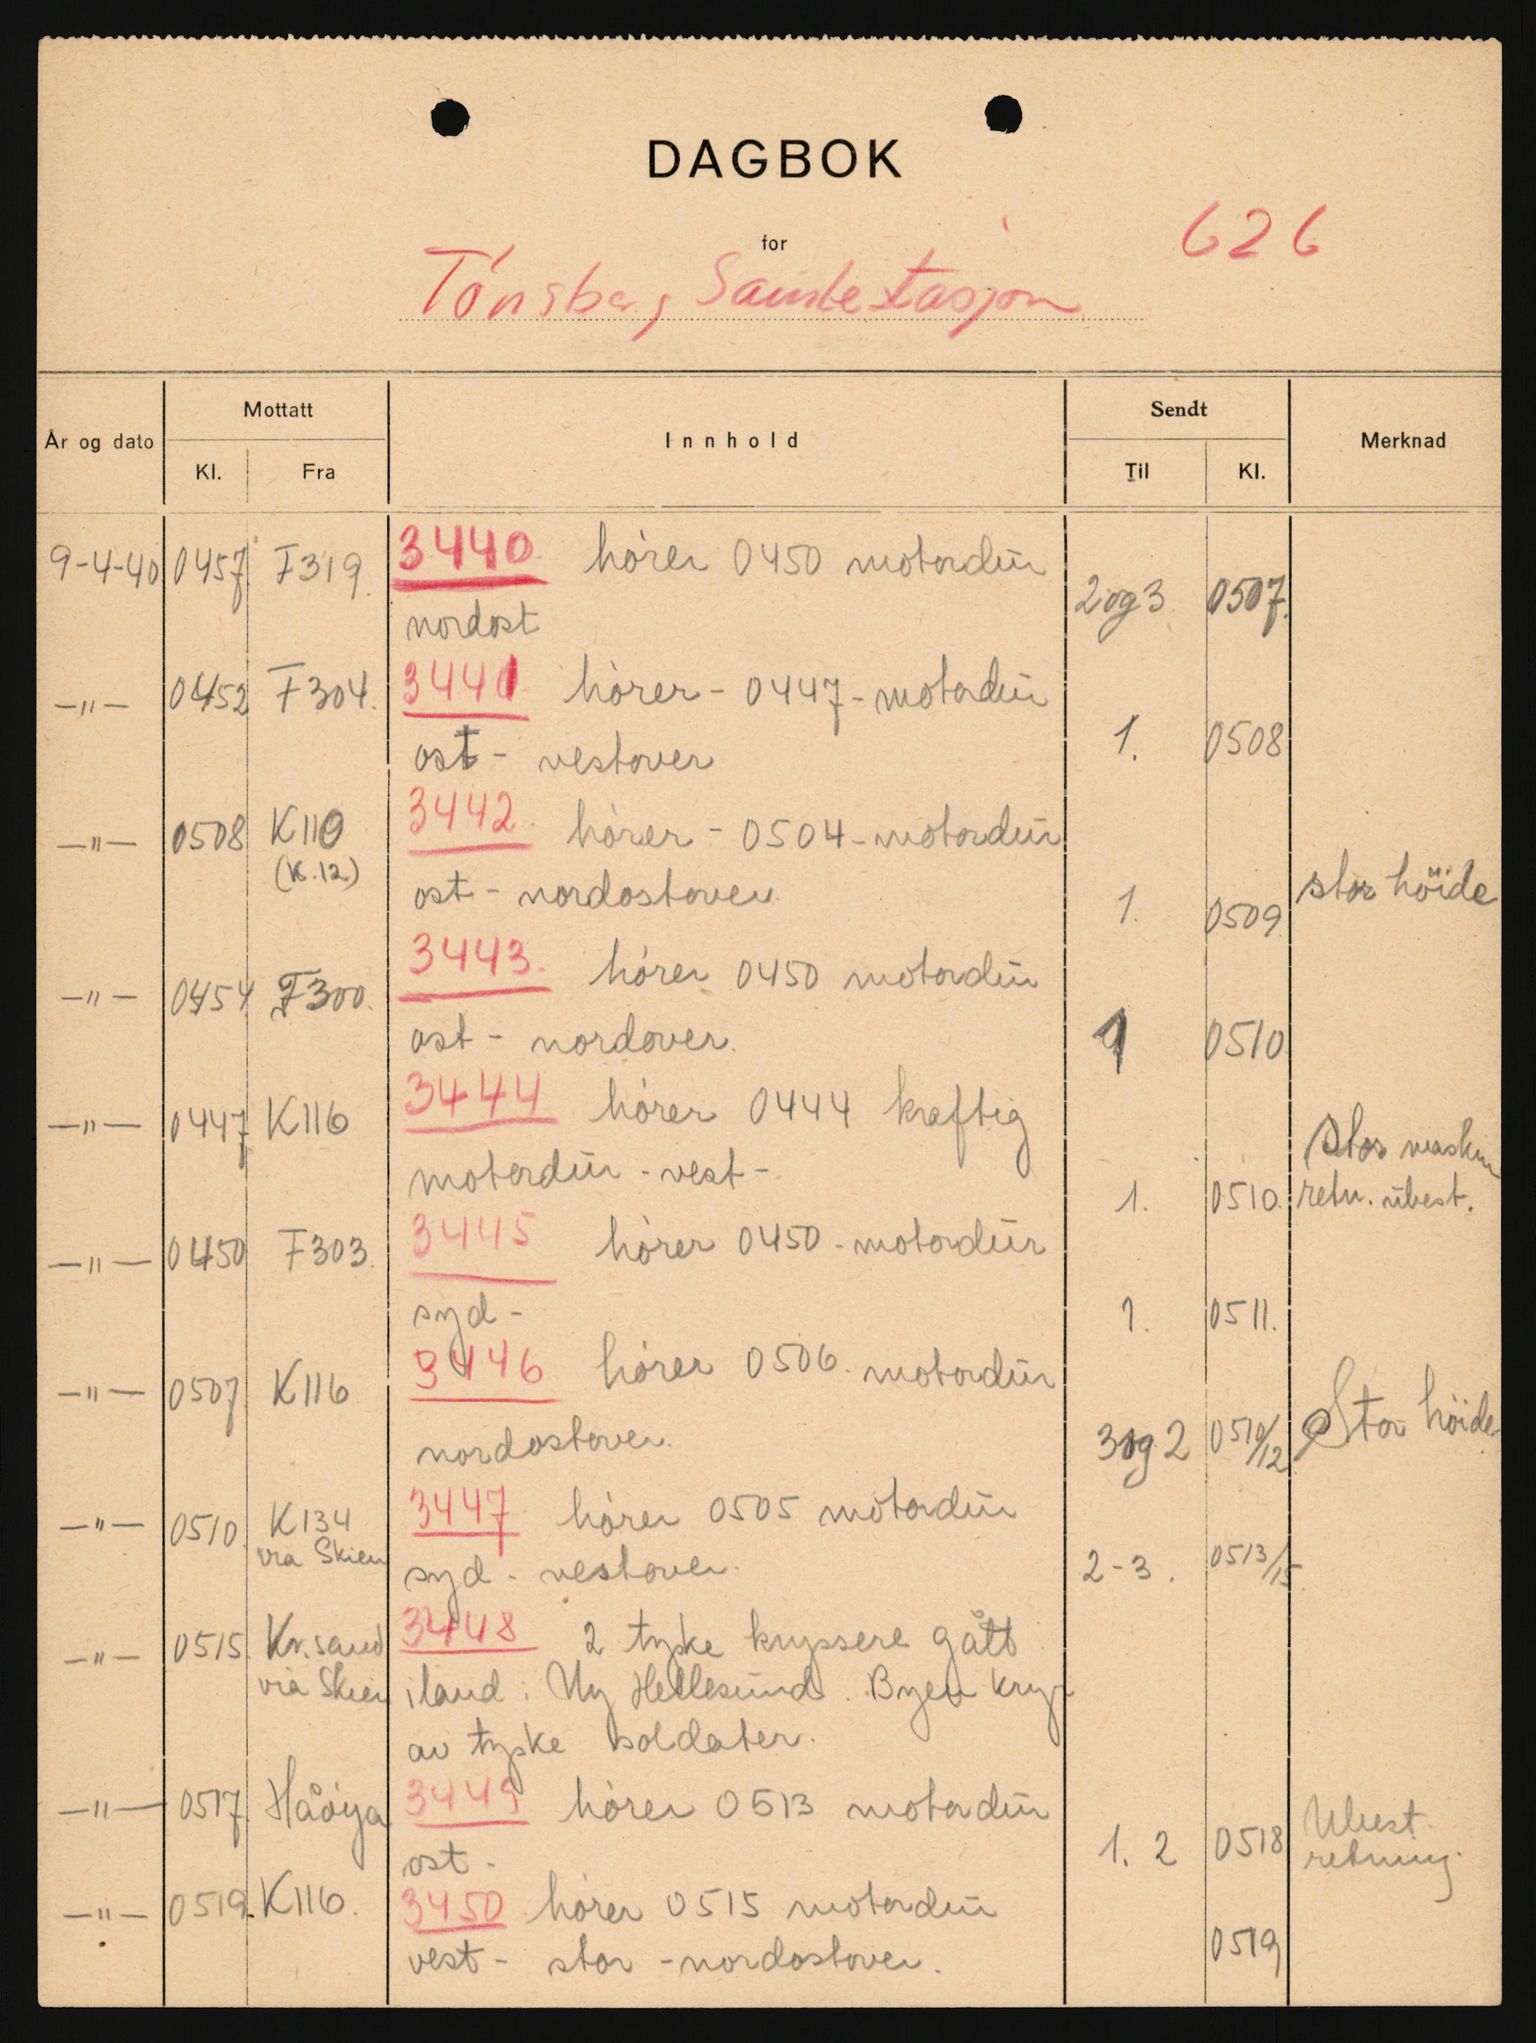 DAGBOK
for
626
Tönsberg Samlestasjon
År og dato Mottatt Innhold Sendt Merknad
Kl. Fra Til Kl.
9-4-40 0457 F319. 3440. hører 0450 motordür
nordost 2 og 3 0507.
—"— 0452 F304. 3441 hører - 0447 - motordür
ost - vestover 1. 0508
—"— 0508 K110 3442. hører - 0504 - motordür
(K.12) ost - nordostover. 1. 0509 stor höide
—"— 0454 F300. 3443. hører 0450 motordür
ost - nordover. 1 0510
—"— 0447 K116 3444 hører 0444 kraftig stor maskin
motordür - vest - 1. 0510. retn. übest.
—"— 0450 F303. 3445 hører 0450 - motordür
syd - 1. 0511.
—"— 0507 K116 3446 hører 0506. motordür
nordostover. 3 og 2 0510/12 Stor höide
—"— 0510. K134 3447 hører 0505 motordür
via Skien syd - vestover. 2-3. 0513/15
—"— 0515. Kr.sand 3448 2 tyske kryssere gått
via Skien iland i Ny Hellesund. Byen kryr
av tyske soldater.
—"— 0517. Håöya 3449 hører 0513 motordür Ubest.
ost - 1. 2 0518 retning.
—"— 0519. K116. 3450 hører 0515 motordür
vest - stor - nordostover. 0519